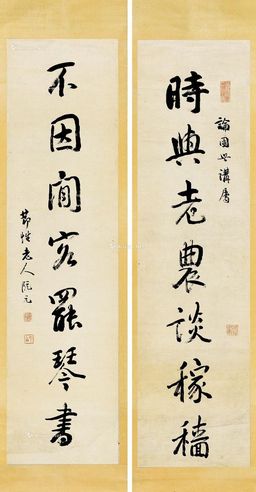 論園世講屬
時與老農談稼穡
不因閒客罷琴書
節性老人阮元